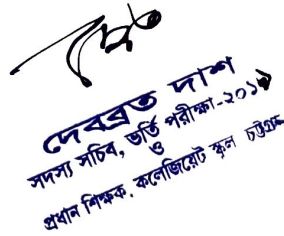 দেবব্রত দাশ
সদস্য সচিব, ভর্তি পরীক্ষা-২০১
ও
প্রধান শিক্ষক, কলেজিয়েট স্কুল চট্টগ্রাম